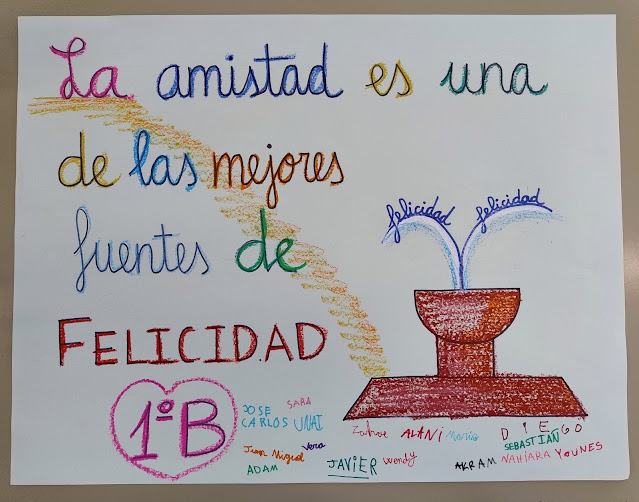 La amistad es una
de las mejores
fuentes de
FELICIDAD
felicidad felicidad
1ºB
JOSE CARLOS
SARA
UNAI
Juan Miguel
Vera
ADAM
JAVIER
Wendy
ALANi
DIEGO
SEBASTIAN
AKRAM
NAHIARA
YOUNES